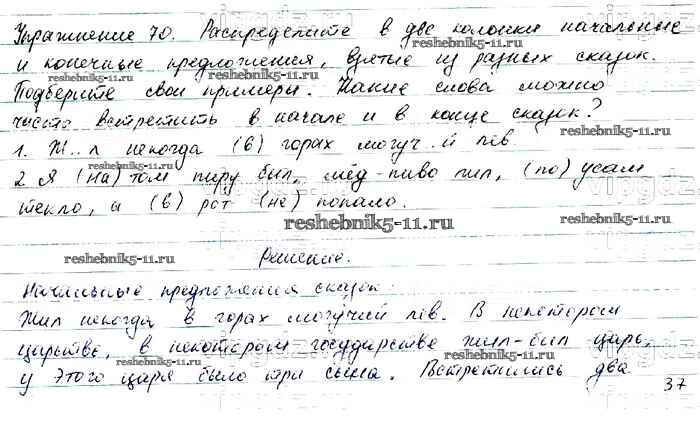 Упражнение 70. Распределите в две колонки начальные
и конечные предложения, взятые из разных сказок.
Подберите свои примеры. Какие слова можно
часто встретить в начале и в конце сказок?
1. Ж..л некогда (в) горах могуч..й лев.
2. Я (на) том пиру был, мёд-пиво пил, (по) усам
текло, а (в) рот (не) попало.
Решение.
Начальные предложения сказок:
Жил некогда в горах могучий лев. В некотором
царстве, в некотором государстве жил-был царь,
у этого царя было три сына. Встретились два
37
reshebnik5-11.ru
reshebnik5-11.ru
reshebnik5-11.ru
reshebnik5-11.ru
reshebnik5-11.ru
reshebnik5-11.ru
reshebnik5-11.ru
reshebnik5-11.ru